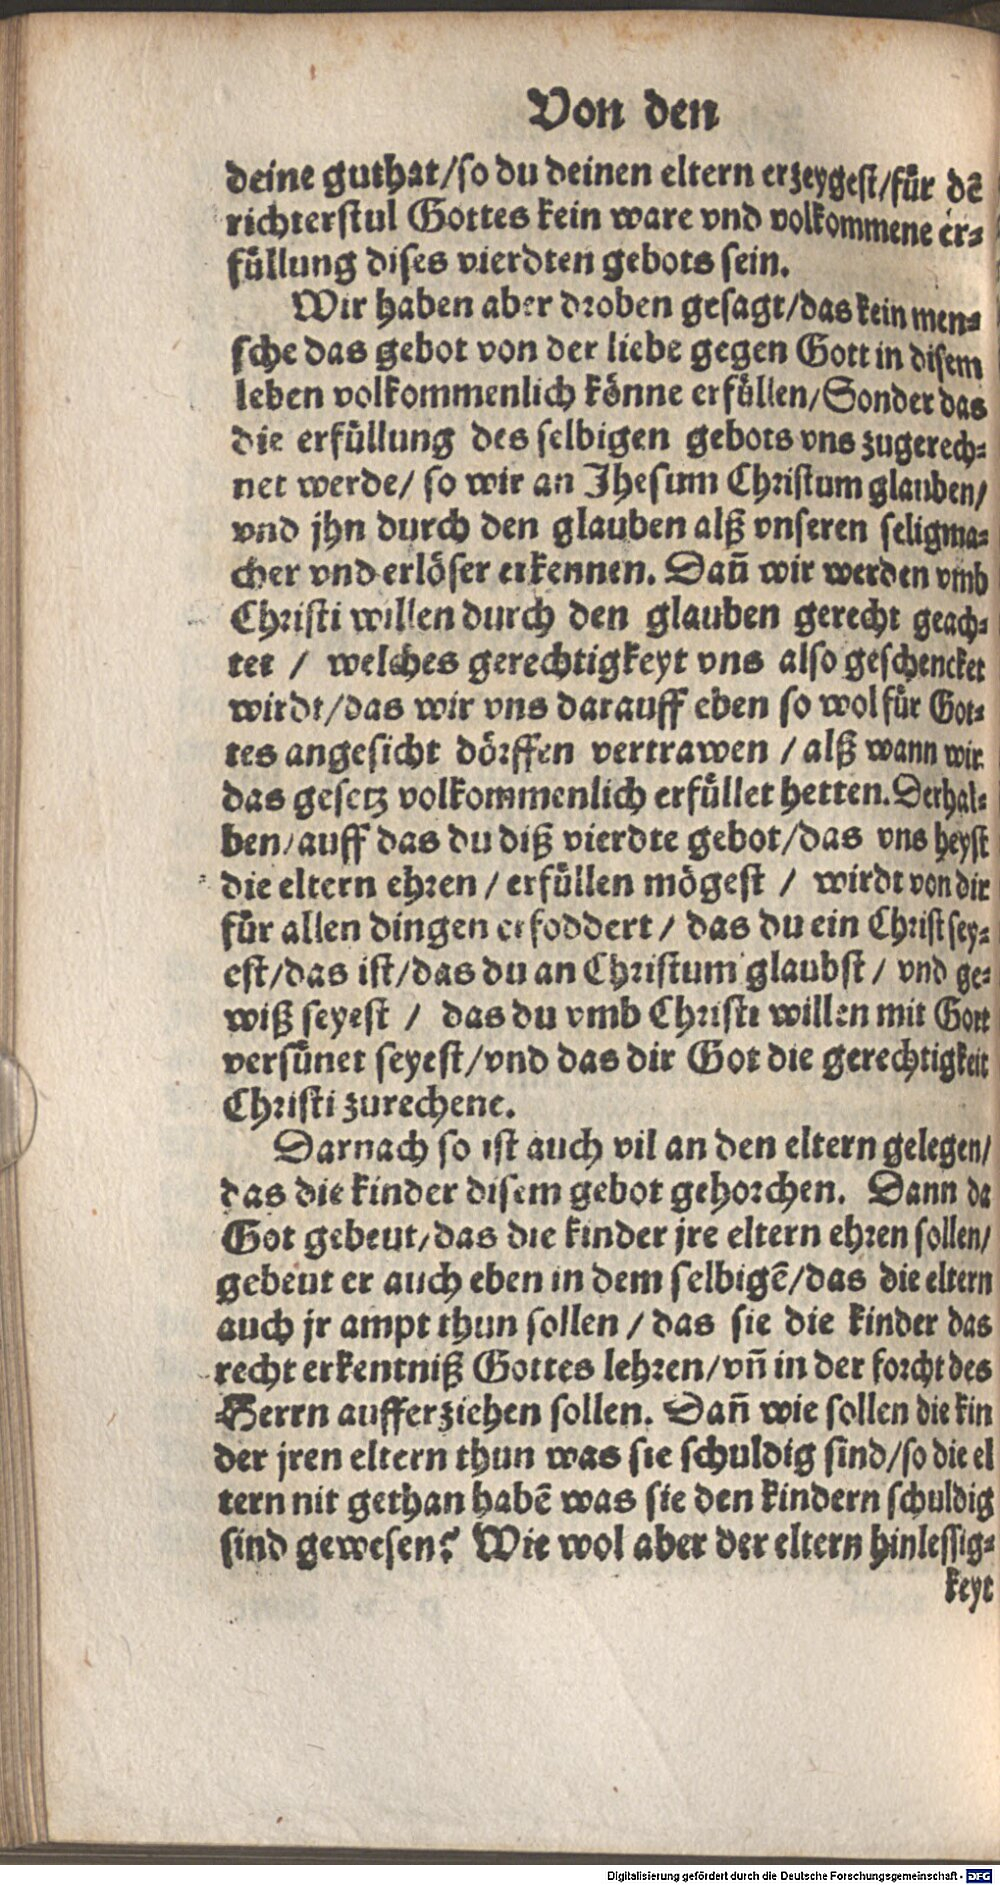 Von den
deine guthat/so du deinen eltern erzeygest/für dē
richterstul Gottes kein ware vnd volkommene er-
füllung dises vierdten gebots sein.
Wir haben aber droben gesagt/das kein men-
sche das gebot von der liebe gegen Gott in disem
leben volkommenlich könne erfüllen/Sonder das
die erfüllung des selbigen gebots vns zugerech-
net werde/ so wir an Jhesum Christum glauben/
vnd jhn durch den glauben alß vnseren seligma-
cher vnd erlöser erkennen. Dañ wir werden vmb
Christi willen durch den glauben gerecht geach-
tet / welches gerechtigkeyt vns also geschencket
wirdt/das wir vns darauff eben so wol für Got-
tes angesicht dörffen vertrawen / alß wann wir
das gesetz volkommenlich erfüllet hetten. Derhal-
ben/auff das du diß vierdte gebot/das vns heyst
die eltern ehren / erfüllen mögest / wirdt von dir
für allen dingen erfoddert / das du ein Christ sey-
est/das ist/das du an Christum glaubst / vnd ge-
wiß seyest / das du vmb Christi willen mit Gott
versünet seyest/vnd das dir Got die gerechtigkeit
Christi zurechene.
Darnach so ist auch vil an den eltern gelegen/
das die kinder disem gebot gehorchen. Dann da
Got gebeut/das die kinder jre eltern ehren sollen/
gebeut er auch eben in dem selbigē/das die eltern
auch jr ampt thun sollen / das sie die kinder das
recht erkentniß Gottes lehren/vñ in der forcht des
Herrn aufferziehen sollen. Dañ wie sollen die kin
der jren eltern thun was sie schuldig sind/so die el
tern nit gethan habē was sie den kindern schuldig
sind gewesen? Wie wol aber der eltern hinlessig-
keyt
Digitalisierung gefördert durch die Deutsche Forschungsgemeinschaft - DFG